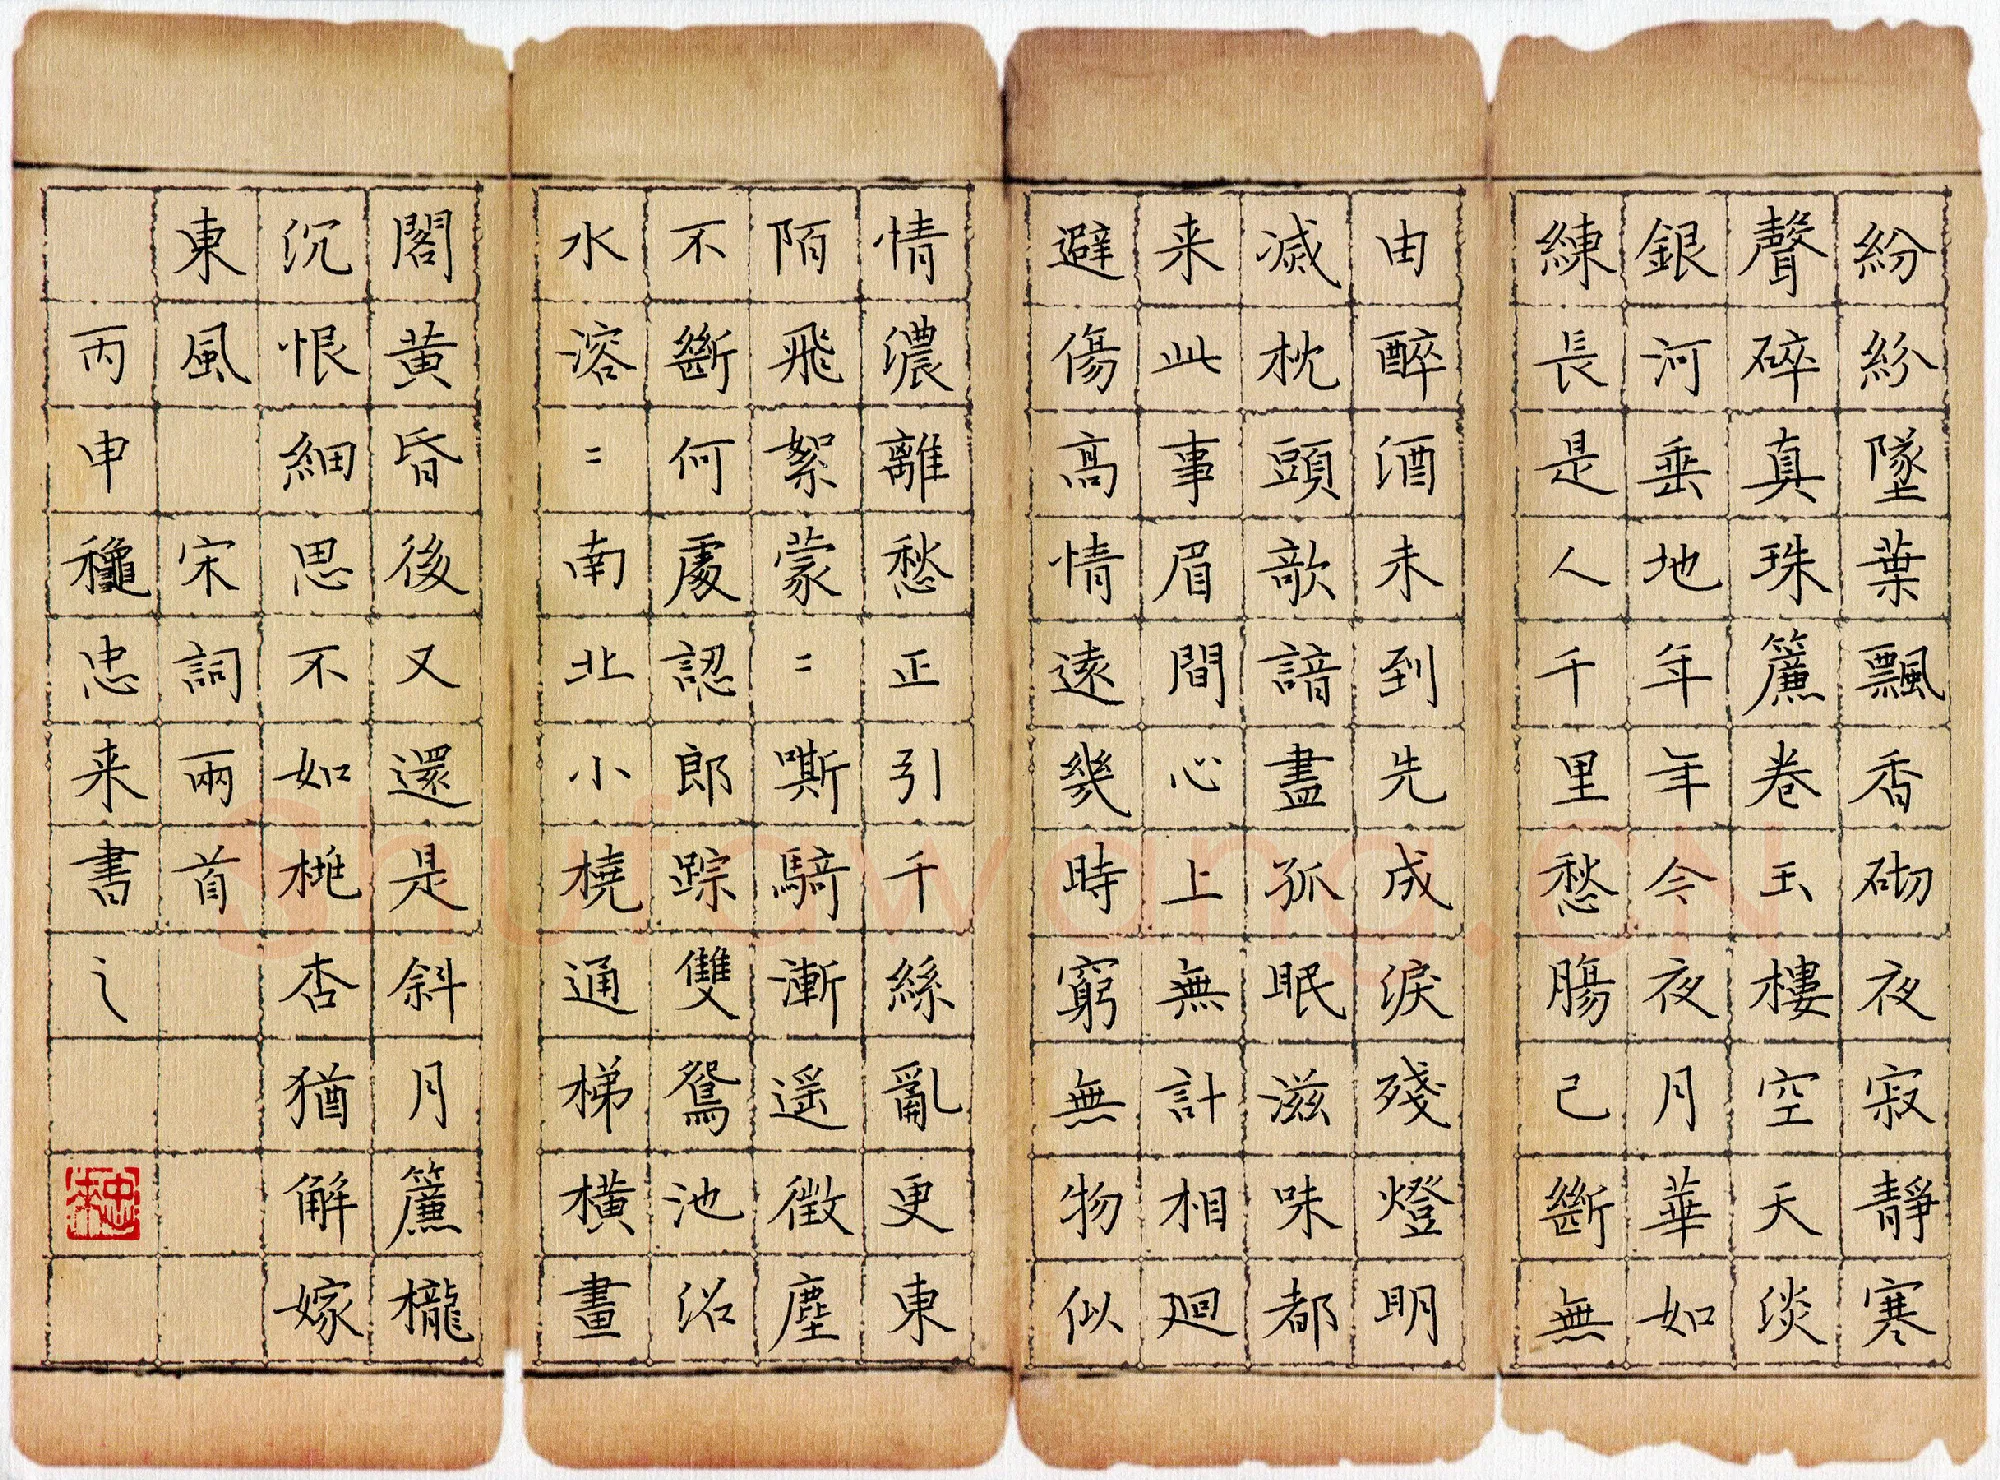 紛紛墜葉飄香砌夜寂靜寒
聲碎真珠簾卷玉樓空天淡
銀河垂地年年今夜月華如
練長是人千里愁腸已斷無
由醉酒未到先成淚殘燈明
滅枕頭敧諳盡孤眠滋味都
来此事眉間心上無計相迴
避傷高情遠幾時窮無物似
情濃離愁正引千絲亂更東
陌飛絮蒙〻嘶騎漸遥徵塵
不斷何處認郎踪雙鴛池沼
水溶〻南北小橈通梯橫畫
閣黄昏後又還是斜月簾櫳
沉恨細思不如桃杏猶解嫁
東風 宋詞兩首
丙申龝忠来書之
忠来
Shufawang.CN